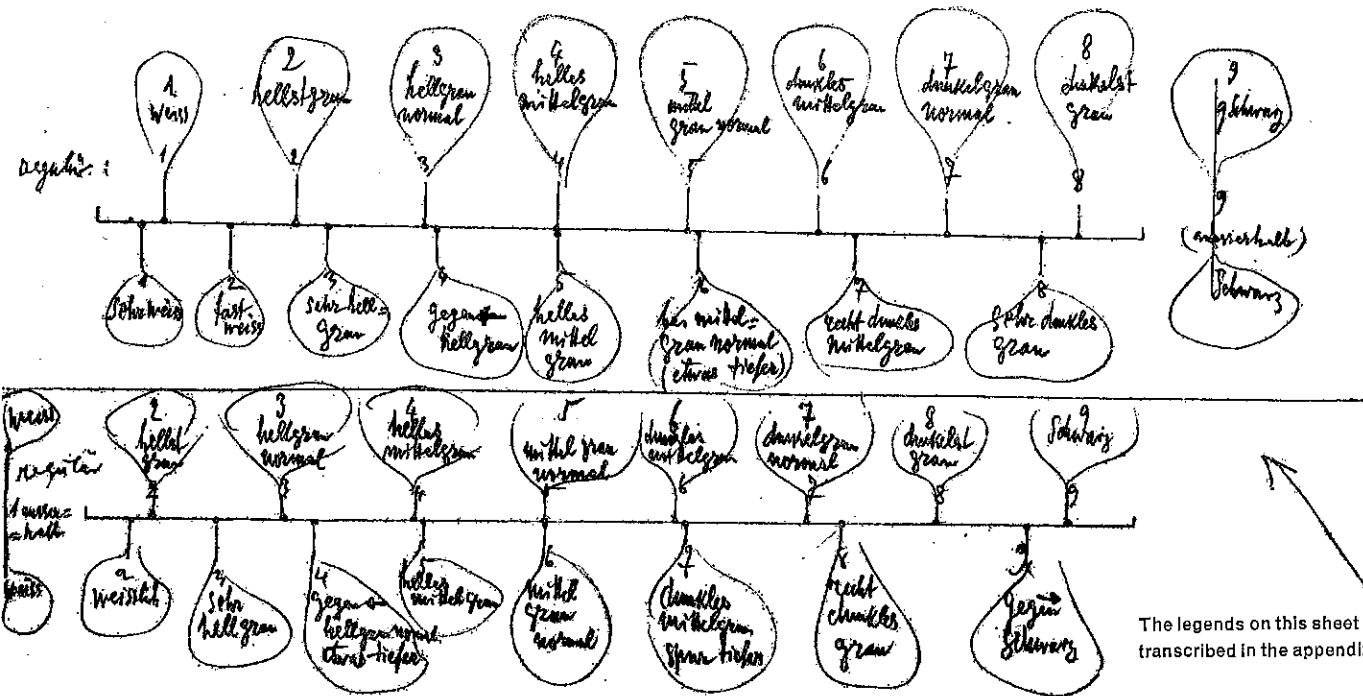 1.
weiss
2
hellstgrau
3
hellgrau
normal
4
helles
mittelgrau
5
mittel
grau normal
6
dunkles
mittelgrau
7
dunkelgrau
normal
8
dunkelst
grau
9
Schwarz
regulär:
1
2
3
4
5
6
7
8
9
(ausserhalb)
1
sehr weiss
2
fast-
weiss
3
sehr hell=
grau
4
gegen
hellgrau
5
helles
mittel
grau
6
mittel=
grau normal
(etwas tiefer)
7
recht dunkles
mittelgrau
8
sehr dunkles
grau
Schwarz
weiss
regulär
1 ausser=
=halb
weiss
2
hellst
grau
2
3
hellgrau
normal
3
4
helles
mittelgrau
4
5
mittel grau
normal
5
6
dunkles
mittelgrau
6
7
dunkelgrau
normal
7
8
dunkelst
grau
8
9
Schwarz
9
2
weisslich
3
sehr
hellgrau
4
gegen
hellgrau normal
etwas tiefer
5
helles
mittelgrau
6
mittel
grau
normal
7
dunkles
mittelgrau
spur tiefer
8
recht
dunkles
grau
9
gegen
Schwarz
The legends on this sheet
transcribed in the appendi